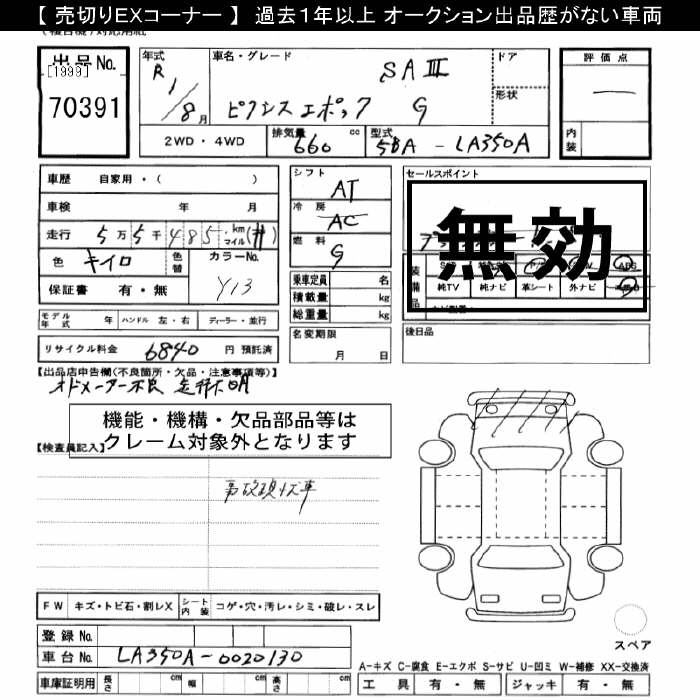 【 売切りEXコーナー 】 過去１年以上 オークション出品歴がない車両
出品No.
[1999]
70391
年式
R 1/8月
車名・グレード
SAⅢ
ピクシスエポック G
ドア
形状
評価点
内装
2WD・4WD
排気量 660 cc
型式 5BA-LA350A
車歴 自家用・( )
車検 年 月
走行 5万5千485 km マイル (#)
色 キイロ
色替
カラーNo. Y13
保証書 有・無
シフト AT
冷房 AC
燃料 G
乗車定員 名
積載量 kg
総重量 kg
名変期限 月 日
セールスポイント
無効
装備品
ABS
純TV 純ナビ 革シート 外ナビ
後日品
モデル年式 年 ハンドル 左・右 ディーラー・並行
リサイクル料金 6840 円 預託済
【出品店申告欄(不良箇所・欠品・注意事項等)】
オドメーター不良 走行不明
機能・機構・欠品部品等は
クレーム対象外となります
【検査員記入】
事故現状車
FW キズ・トビ石・割レX シート内装 コゲ・穴・汚レ・シミ・破レ・スレ
登録No.
車台No. LA350A-0020130
車庫証明用 長さ cm 幅 cm 高さ cm
スペア
A-キズ C-腐食 E-エクボ S-サビ U-凹ミ W-補修 XX-交換済
工具 有・無 ジャッキ 有・無